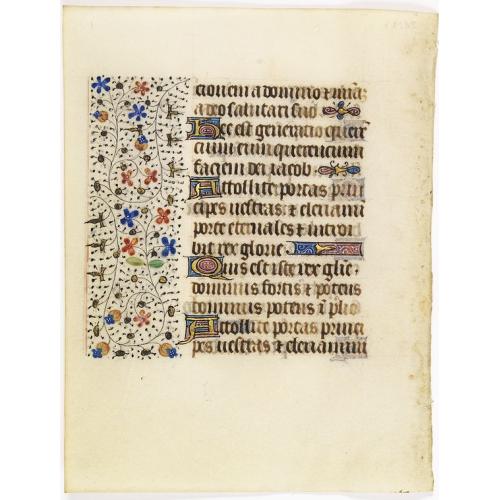 ctionem a domino et mia
a deo salutari suo
Hec est generatio querē
cium eum querencium
faciem dei iacob
Attollite portas prin
cipes uestras et eleuami
porte eternales et introi
bit rex glorie
Quis est iste rex glie
dominus fortis et potens
dominus potens i plio
Attollite portas princi
pes uestras et eleuamini